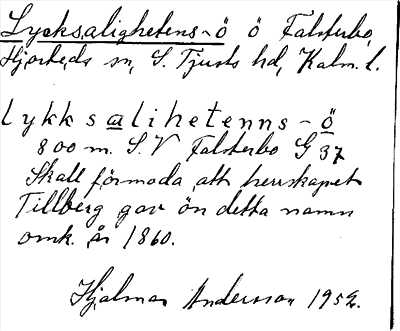 Lycksalighetens-ö ö Falsterbo,
Hjorteds sn, S. Tjusts hd, Kalm. l.
Lykksalihetenns-ö
800 m. S.V Falsterbo G 37
Skall förmoda att herrskapet
Tillberg gav ön detta namn
omk. år 1860.
Hjalmar Andersson 1952.